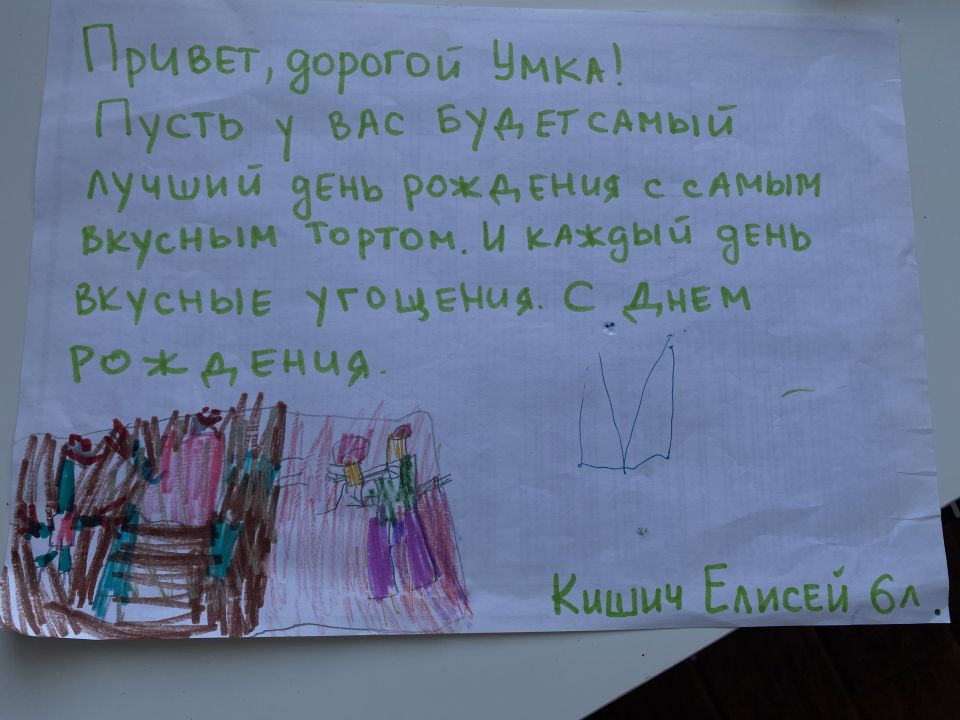 Привет, дорогой Умка!
Пусть у вас будет самый
лучший день рождения с самым
вкусным тортом. И каждый день
вкусные угощения. С Днем
рождения.
Кишич Елисей 6л.